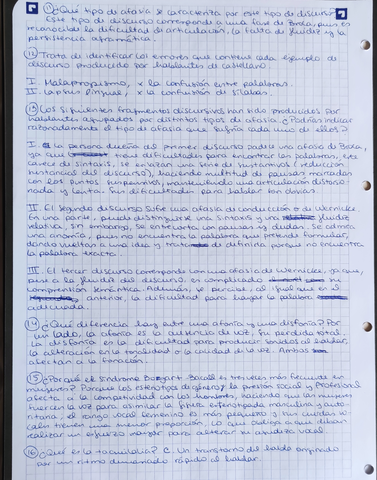 ⑪ ¿Qué tipo de afasia se caracteriza por este tipo de discurso?
Este tipo de discurso corresponde a una fase de Broca, pues es
reconocible la dificultad de articulación, la falta de fluidez y la
persistencia agramática.
⑫ Trata de identificar los errores que contiene cada ejemplo de
discurso producido por hablantes de castellano
I. Malapropismo, x la confusión entre palabras.
II. Lapsus linguae, x la confusión de sílabas.
⑬ Los siguientes fragmentos discursivos han sido producidos por
hablantes aquejados por distintos tipos de afasia. ¿Podrías indicar
razonadamente el tipo de afasia que sufría cada uno de ellos?
I. La persona dueña del primer discurso padece una afasia de Broca,
ya que tiene dificultades para encontrar las palabras, esta
carece de sintaxis, se enlazan una serie de sustantivos (reducción
sustancial del discurso), haciendo multitud de pausas marcadas
con los puntos suspensivos, manteniendo una articulación distorsio-
nada y cauta. Sin dificultades para hablar son obvias.
II. El segundo discurso sufre una afasia de conducción o de Wernicke.
En una parte, puede distinguirse una sintaxis y una fluidez
relativa, sin embargo, se entrecorta con pausas y dudas. Se adhiere
una anomia, pues no encuentra la palabra que pretende formular,
dando vueltas a una idea y tratando de definirla porque no encuentra
la palabra exacta.
III. El tercer discurso corresponde con una afasia de Wernicke, ya que,
pese a la fluidez del discurso, es complicada su
comprensión semántica. Además, se percibe, al igual que en el
anterior, la dificultad para hallar la palabra
adecuada.
⑭ ¿Qué diferencia hay entre una afonía y una disfonía? Por
un lado, la afonía es la ausencia de voz, su perdida total.
La disfonía es la dificultad para producir sonidos al hablar,
la alteración en la tonalidad o la calidad de la voz. Ambas
afectan a la fonación.
⑮ ¿Por qué el síndrome Bogart-Bacall es tres veces más frecuente en
mujeres? Porque los estereotipos de género y la presión social y profesional
afecta a la competitividad con los hombres, haciendo que las mujeres
fuercen la voz para asimilar la figura estereotipada masculina y auto-
ritaria. el rango vocal femenino es más pequeño y sus cuerdas vo-
cales tienen una menor proporción, lo que obliga a que deban
realizar un esfuerzo mayor para alterar su agudeza vocal.
⑯ ¿Qué es la taquilalia? C. Un transtorno del habla ocasionado
por un ritmo demasiado rápido al hablar.